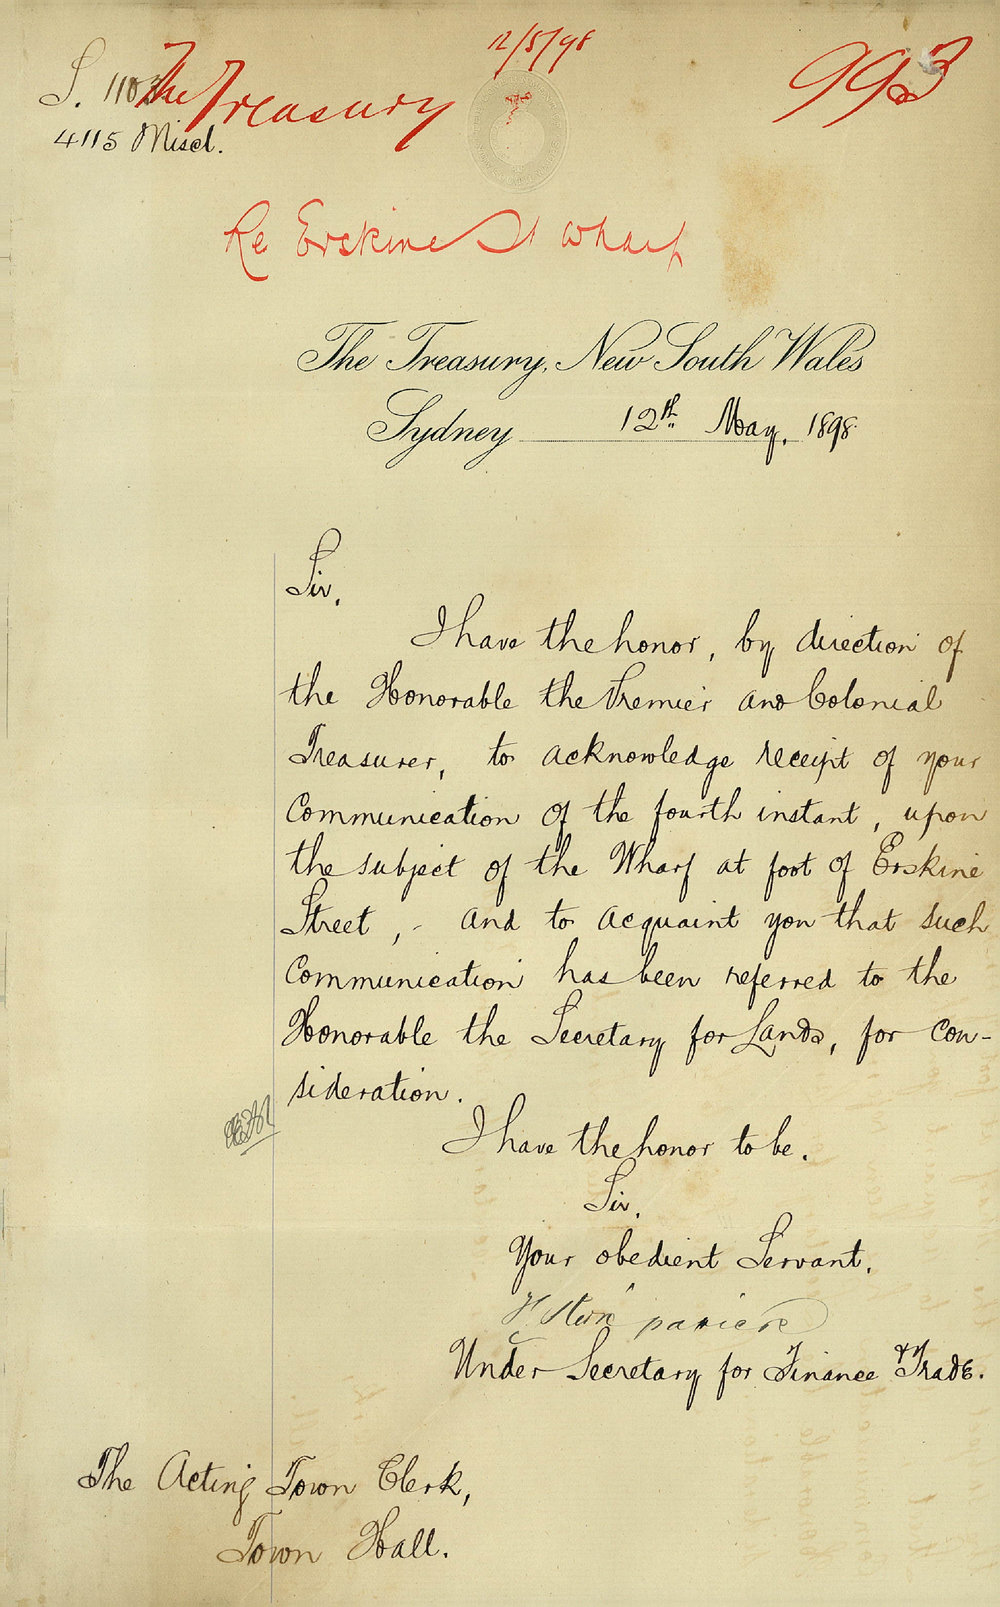 12/5/98
993
S. 1103
The Treasury
4115 Miscl.
Re Erskine St Wharf
The Treasury, New South Wales
Sydney 12th May, 1898
Sir,
I have the honor, by direction of
the Honorable the Premier and Colonial
Treasurer, to acknowledge receipt of your
Communication of the fourth instant, upon
the subject of the Wharf at foot of Erskine
Street, - and to acquaint you that such
Communication has been referred to the
Honorable the Secretary for Lands, for con-
sideration.
I have the honor to be,
Sir,
Your obedient Servant,
Under Secretary for Finance & Trade.
The Acting Town Clerk,
Town Hall.